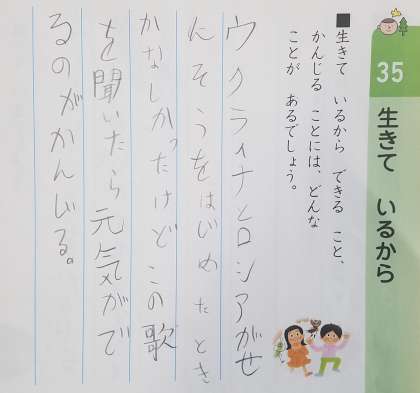 35
生きて いるから
■生きて いるから できる こと、
かんじる ことには、どんな
ことが あるでしょう。
ウクライナとロシアがせ
にそうをはじめたとき
かなしかったけどこの歌
を聞いたら元気がで
るのがかんじる。